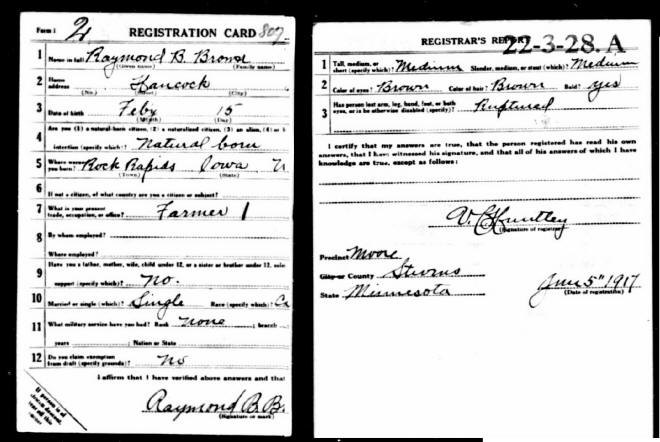 Form 1 2 REGISTRATION CARD 807
1 Name in full Raymond B. Brown
(Given name) (Family name)
2 Home address Hancock
(No.) (Street) (City)
3 Date of birth Feby 15
(Month) (Day)
4 Are you (1) a natural-born citizen, (2) a naturalized citizen, (3) an alien, (4) or
intention (specify which)? Natural born
5 Where were you born? Rock Rapids Iowa U
(Town) (State)
6 If not a citizen, of what country are you a citizen or subject?
7 What is your present trade, occupation, or office? Farmer 1
8 By whom employed?
Where employed?
9 Have you a father, mother, wife, child under 12, or a sister or brother under 12, sole
support (specify which)? no.
10 Married or single (which)? Single Race (specify which)? Ca
11 What military service have you had? Rank none ; branch
years ; Nation or State
12 Do you claim exemption from draft (specify grounds)? No
I affirm that I have verified above answers and that
Raymond B. B.
(Signature or mark)
If person is of
REGISTRAR'S REPORT 22-3-28. A
1 Tall, medium, or short (specify which)? Medium Slender, medium, or stout (which)? Medium
2 Color of eyes? Brown Color of hair? Brown Bald? yes
3 Has person lost arm, leg, hand, foot, or both
eyes, or is he otherwise disabled (specify)? Ruptured
I certify that my answers are true, that the person registered has read his own
answers, that I have witnessed his signature, and that all of his answers of which I have
knowledge are true, except as follows:
(Signature of registrar)
Precinct Moore
City or County Stevens
State Minnesota June 5" 1917
(Date of registration)